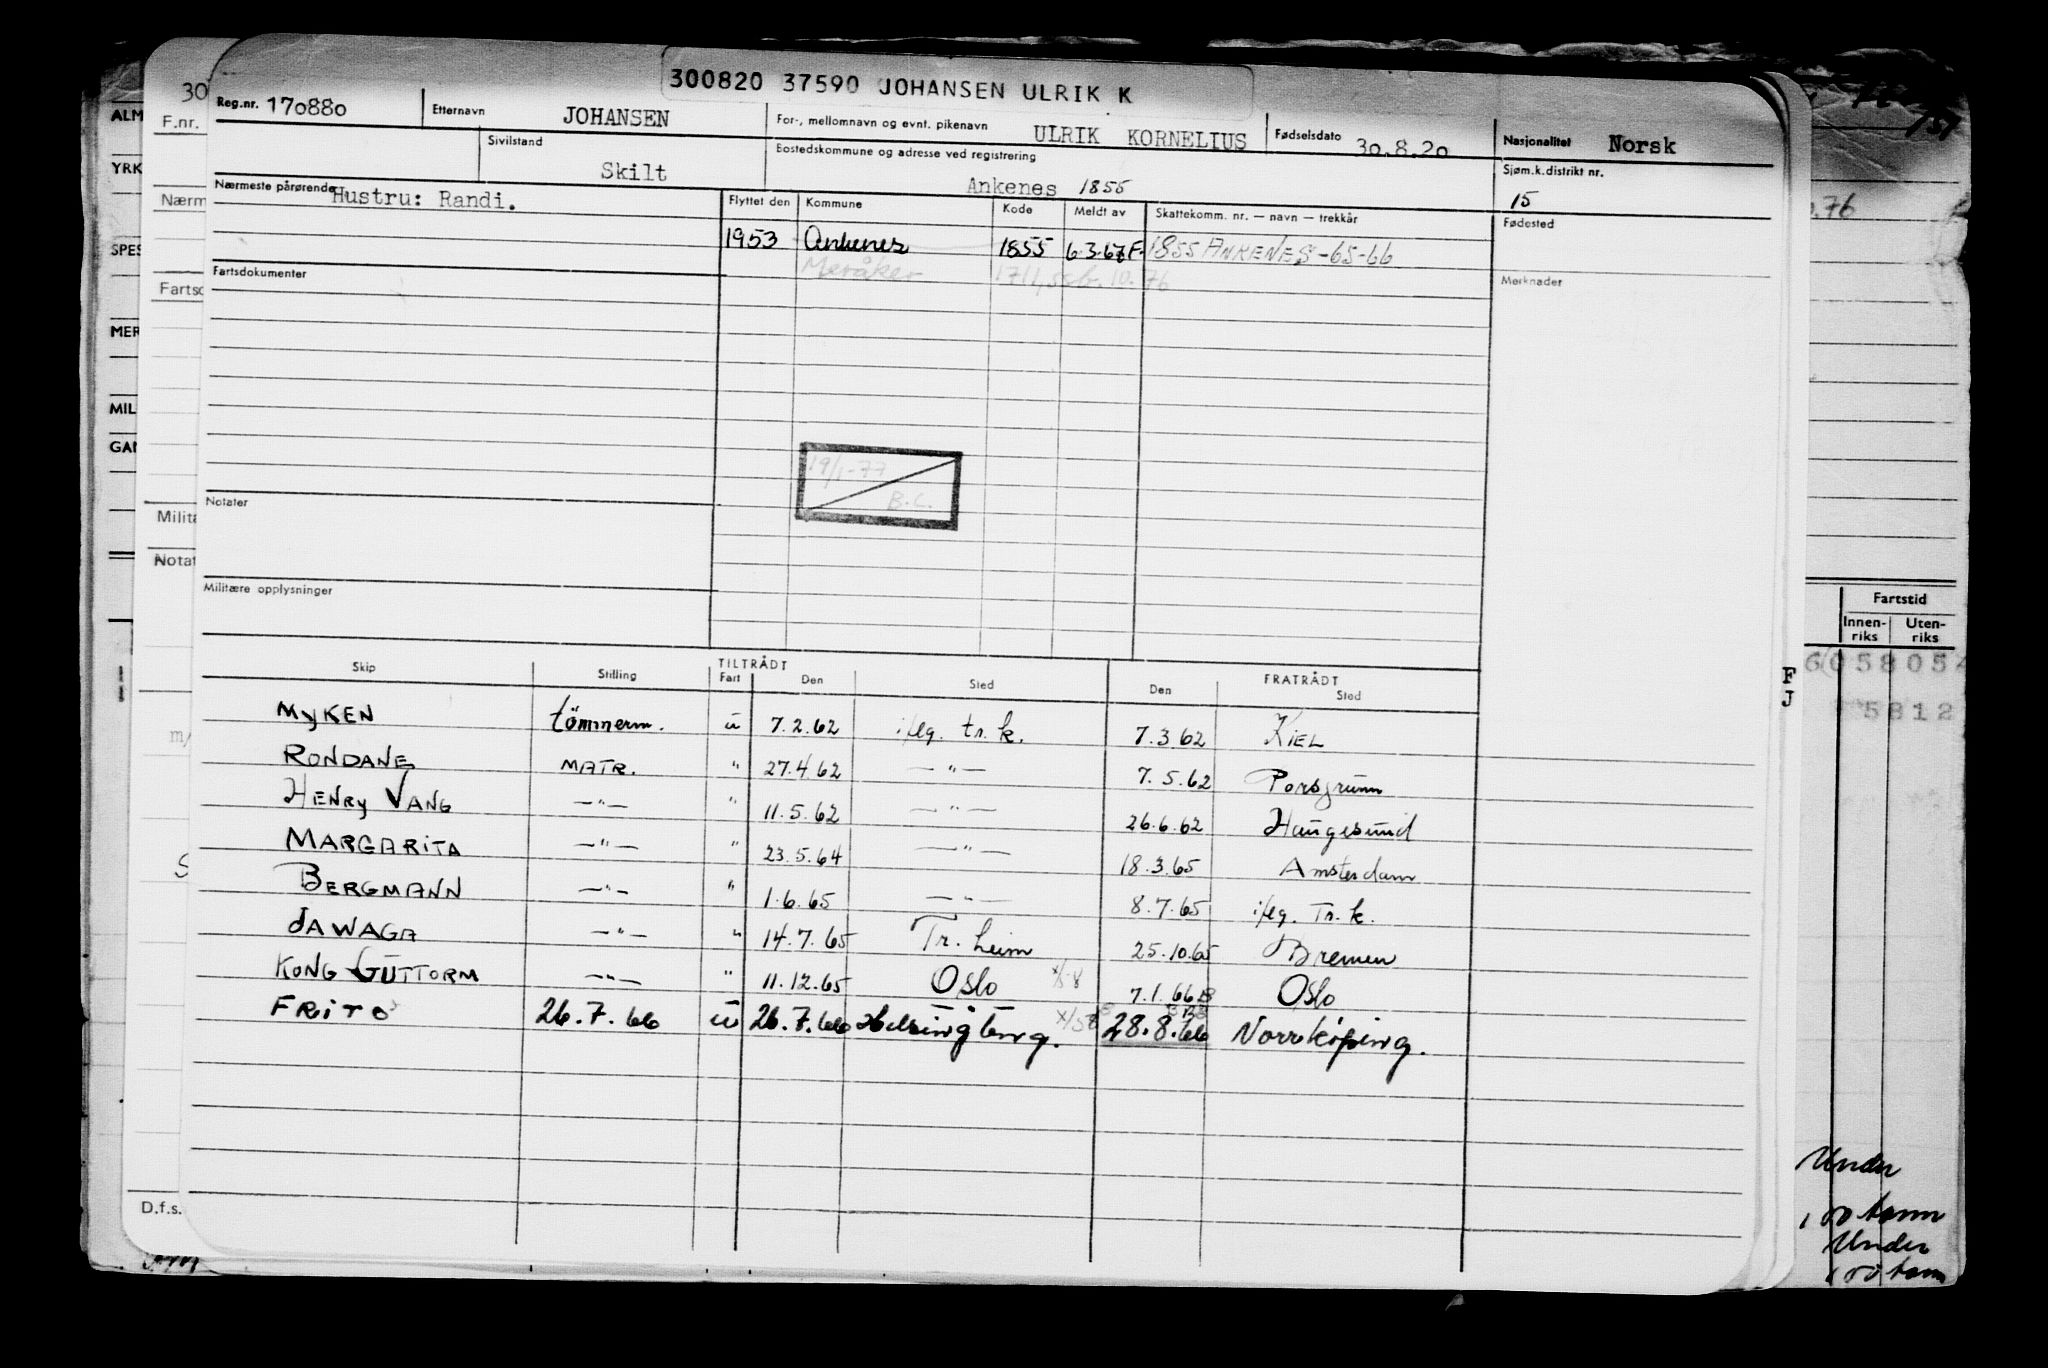 300820 37590 JOHANSEN ULRIK K
Reg.nr. 170880 Etternavn JOHANSEN For-, mellomnavn og evnt. pikenavn ULRIK KORNELIUS Fødselsdato 30.8.20 Nasjonalitet Norsk
Sivilstand Skilt Bostedskommune og adresse ved registrering Ankenes 1855 Sjøm.k.distrikt nr. 15
Nærmeste pårørende Hustru: Randi. Flyttet den Kommune Kode Meldt av Skattekomm. nr. — navn — trekkår Fødested
1953 Ankenes 1855 6.3.67 F. 1855 ANKENES -65-66
Meråker 1711
Fartsdokumenter Merknader
19/1-77
B.C.
Notater
Militære opplysninger
TILTRÅDT FRATRÅDT
Skip Stilling Fart Den Sted Den Sted
MYKEN tömmerm. u 7.2.62 iflg. tr.k. 7.3.62 KIEL
RONDANE MATR. " 27.4.62 —"— 7.5.62 Porsgrunn
HENRY VANG —"— " 11.5.62 —"— 26.6.62 Haugesund
MARGARITA —"— " 23.5.64 —"— 18.3.65 Amsterdam
BERGMANN —"— " 1.6.65 —"— 8.7.65 iflg. Tr.k.
JAWAGA —"— " 14.7.65 Tr.heim 25.10.65 Bremen
KONG GUTTORM —"— " 11.12.65 Oslo 7.1.66 Oslo
FRITO 26.7.66 u 26.7.66 28.8.66 Norrköping.
30
F.nr.
Nærm
Fartsd
Milita
Notat
m/
S
D.f.s.
ALM
YRK
SPES
MER
MIL
GAN
F
J
Fartstid
Innen-riks Uten-riks
58054
5812
Under
100 tonn
Under
100 tonn